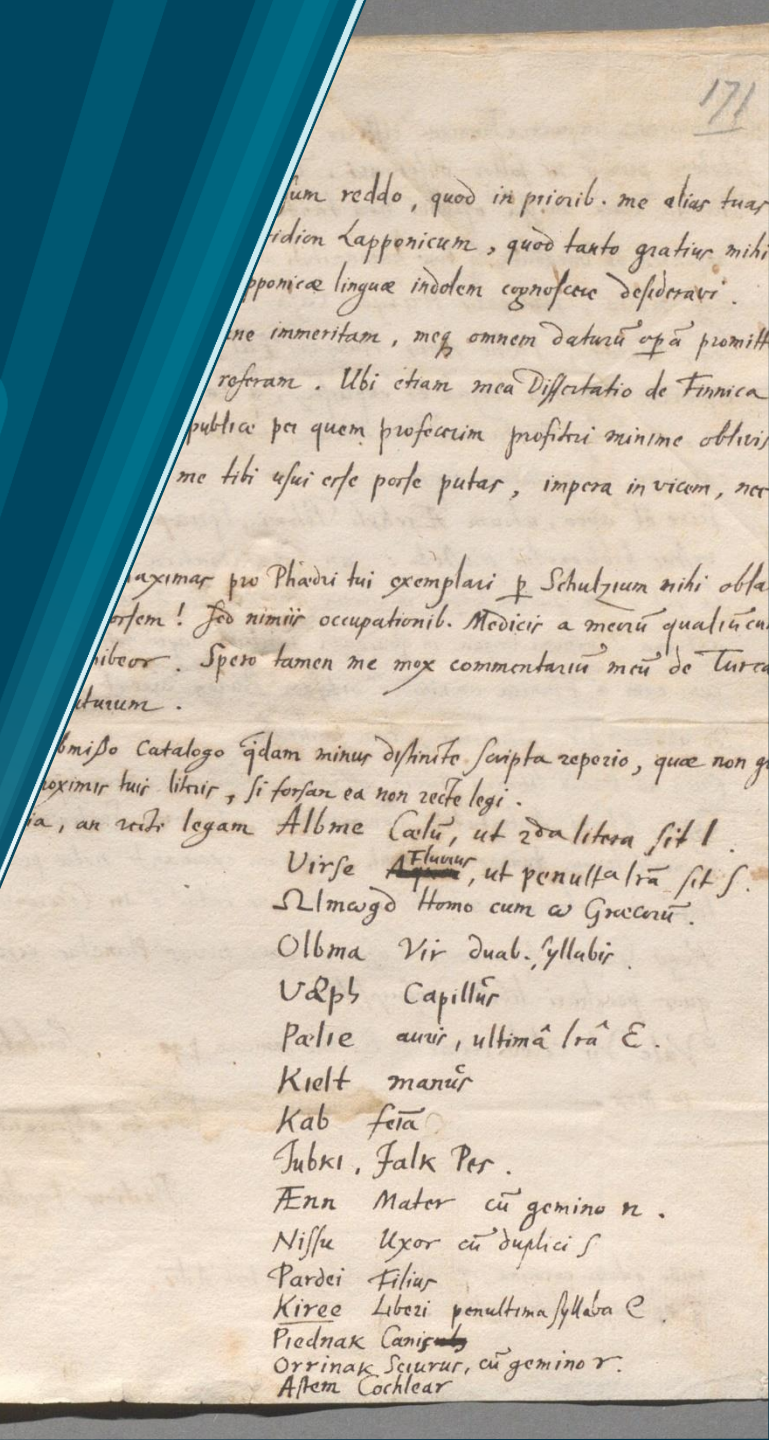 171
sum reddo, quod in priorib. me alias tuas
idion Lapponicum, quod tanto gratius mihi
pponicæ linguæ indolem cognoscere desideravi.
ne immeritam, meq omnem daturū opā promitt
referam. Ubi etiam mea Dissertatio de Finnica
publice per quem profecerim profiteri minime oblivis
me tibi usui esse posse putas, impera in vicem, nec
aximas pro Phædri tui exemplari p Schulzium mihi obla
ortem! Sed nimiis occupationib. Medicis a meorū qualiūcu
hibeor. Spero tamen me mox commentariū meū de Turca
aturum.
bmisso Catalogo qdam minus distincte scripta reperio, quæ non g
roximis tuis literis, si forsan ea non recte legi.
ia, an recte legam Albme Cælū, ut 2da litera sit l.
Virse Fluvius, ut penulta lrā sit s.
Ωlmωgd Homo cum ω Græcorū.
Olbma Vir duab. syllabis.
Capillus
Pælie auris, ultimâ lrâ E.
Kielt manus
Kab feīa
Jubki, Jalk Pes.
Ænn Mater cū gemino n.
Nissu Uxor cū duplici s
Pardei Filius
Kiree Liberi penultima syllaba e.
Piednak Canis
Orrinak Sciurus, cū gemino r.
Astem Cochlear